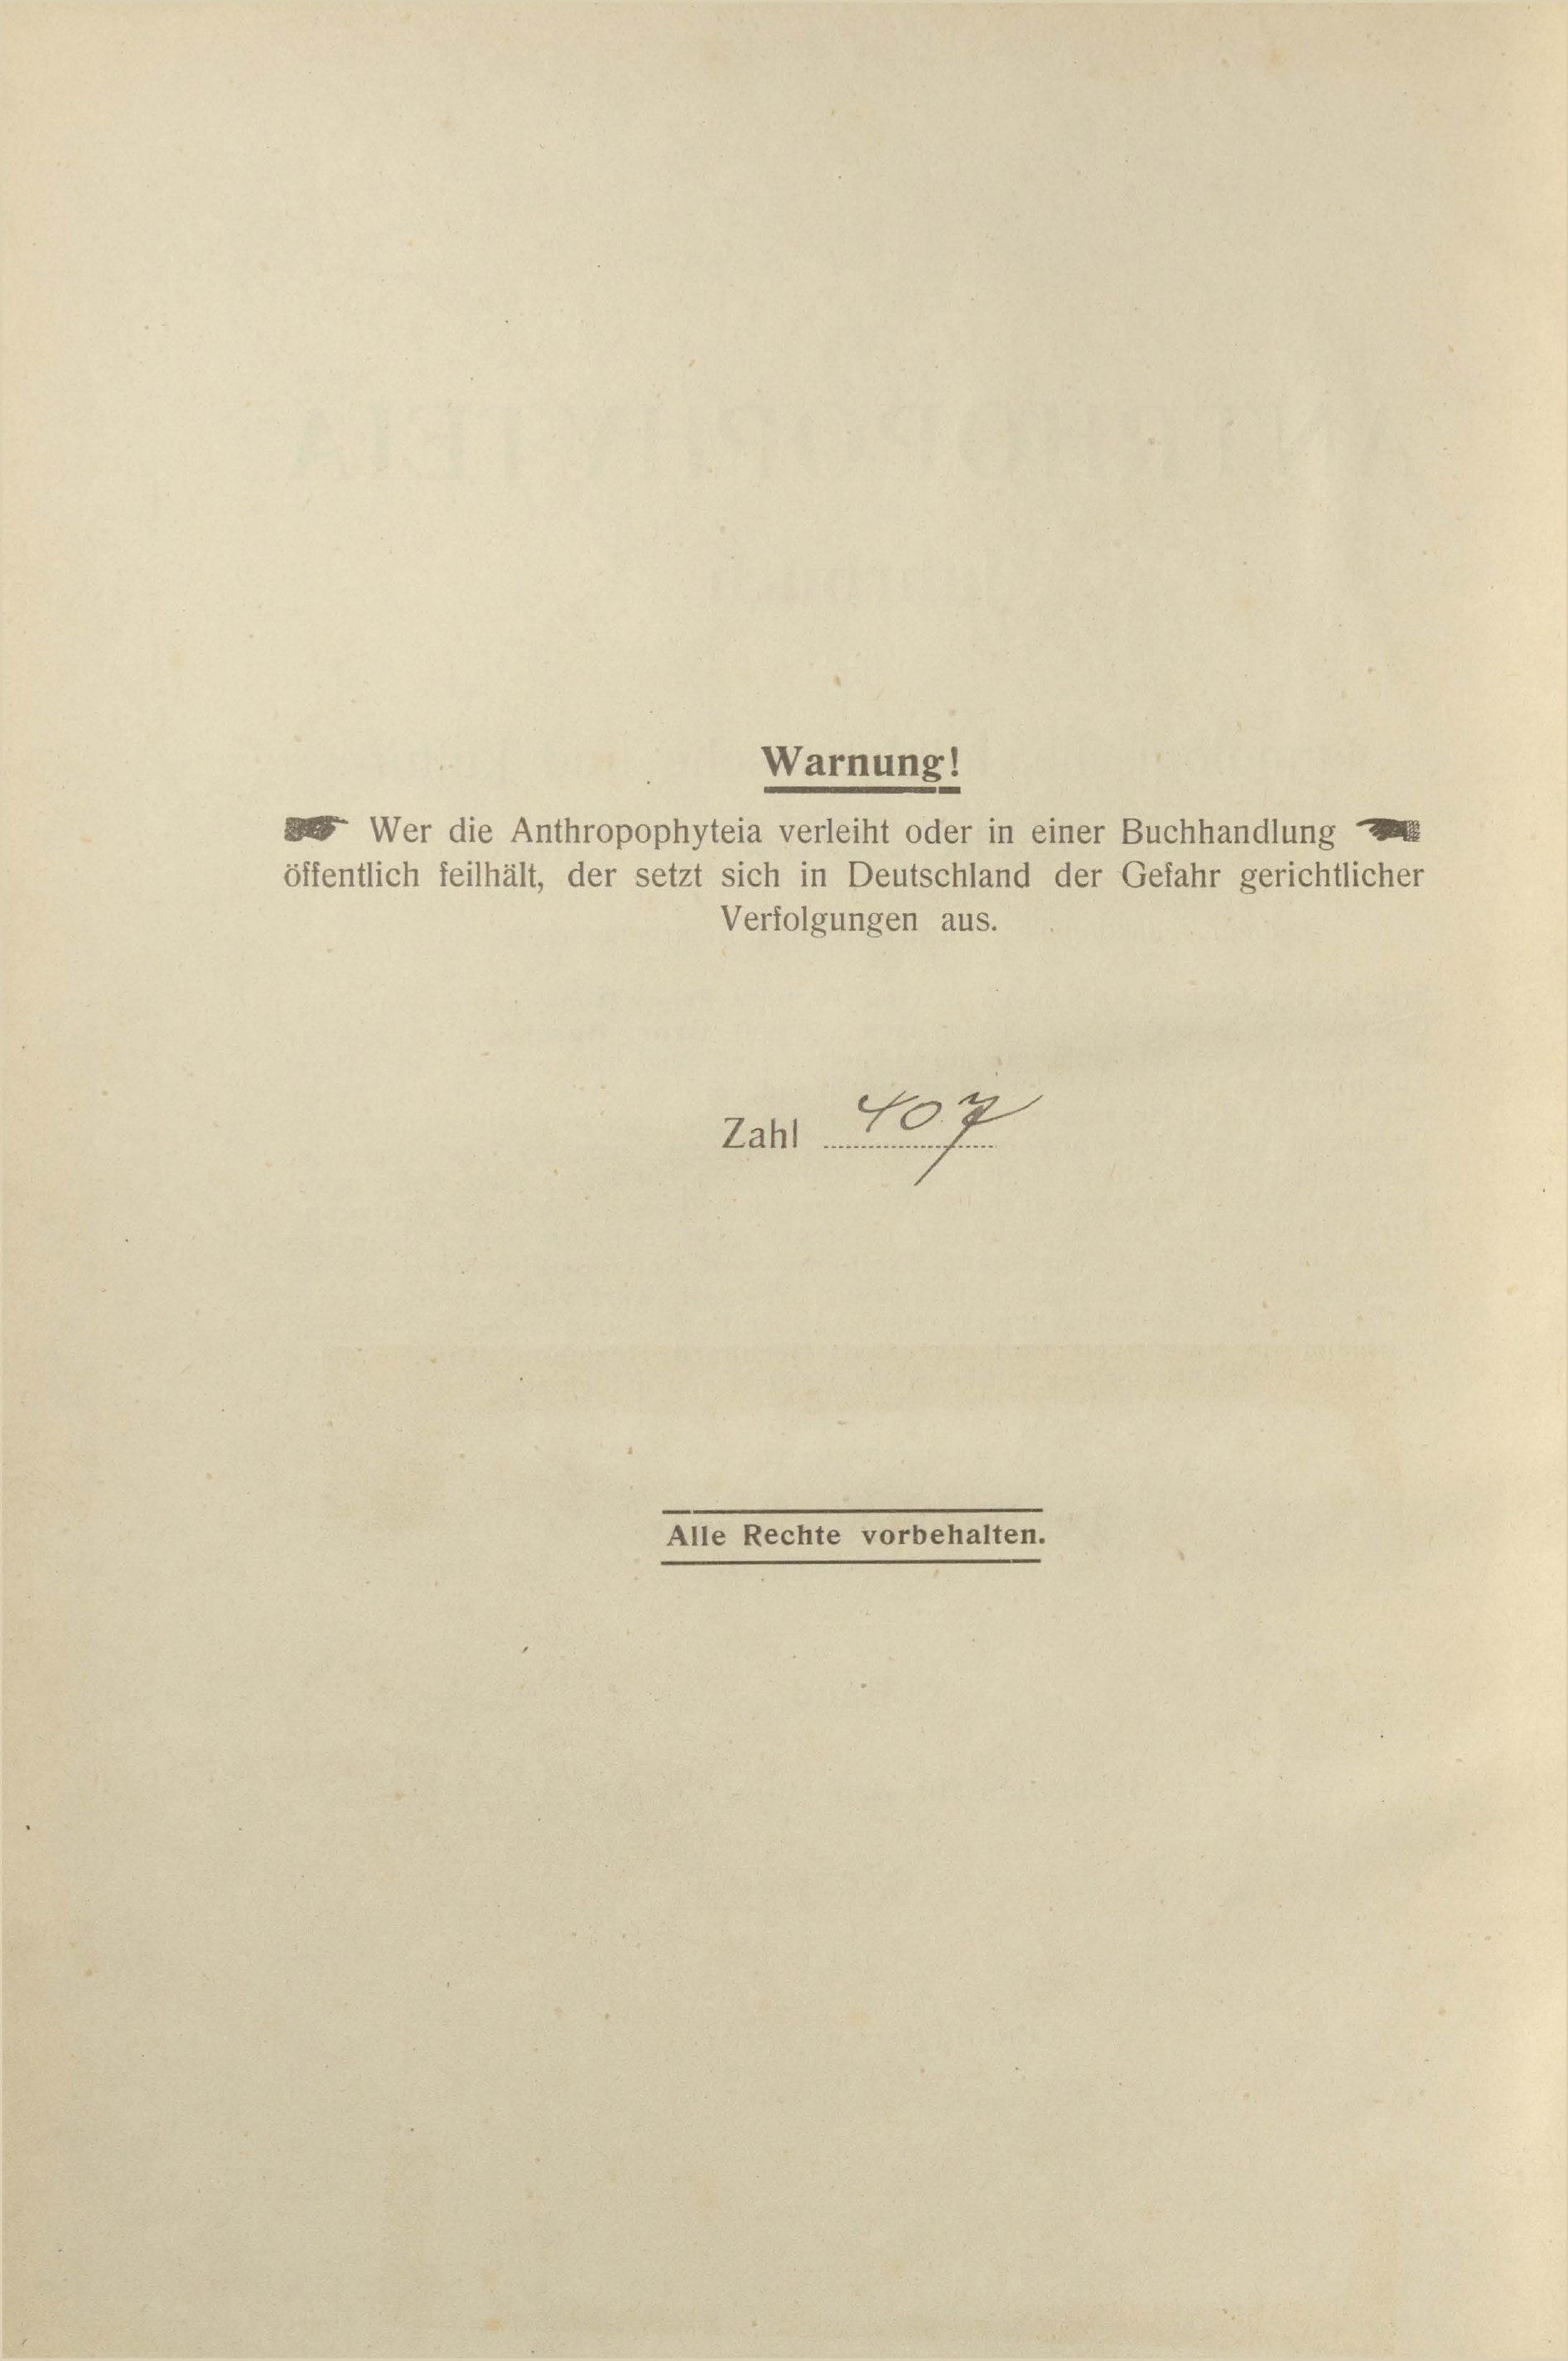 Warnung!
☛ Wer die Anthropophyteia verleiht oder in einer Buchhandlung ☚
öffentlich feilhält, der setzt sich in Deutschland der Gefahr gerichtlicher
Verfolgungen aus.
Zahl 407
Alle Rechte vorbehalten.